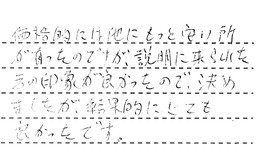 価格的には他にもっと安い所
が有ったのですが、説明に来られた
方の印象が良かったので、決め
ましたが、結果的にとても
良かったです。